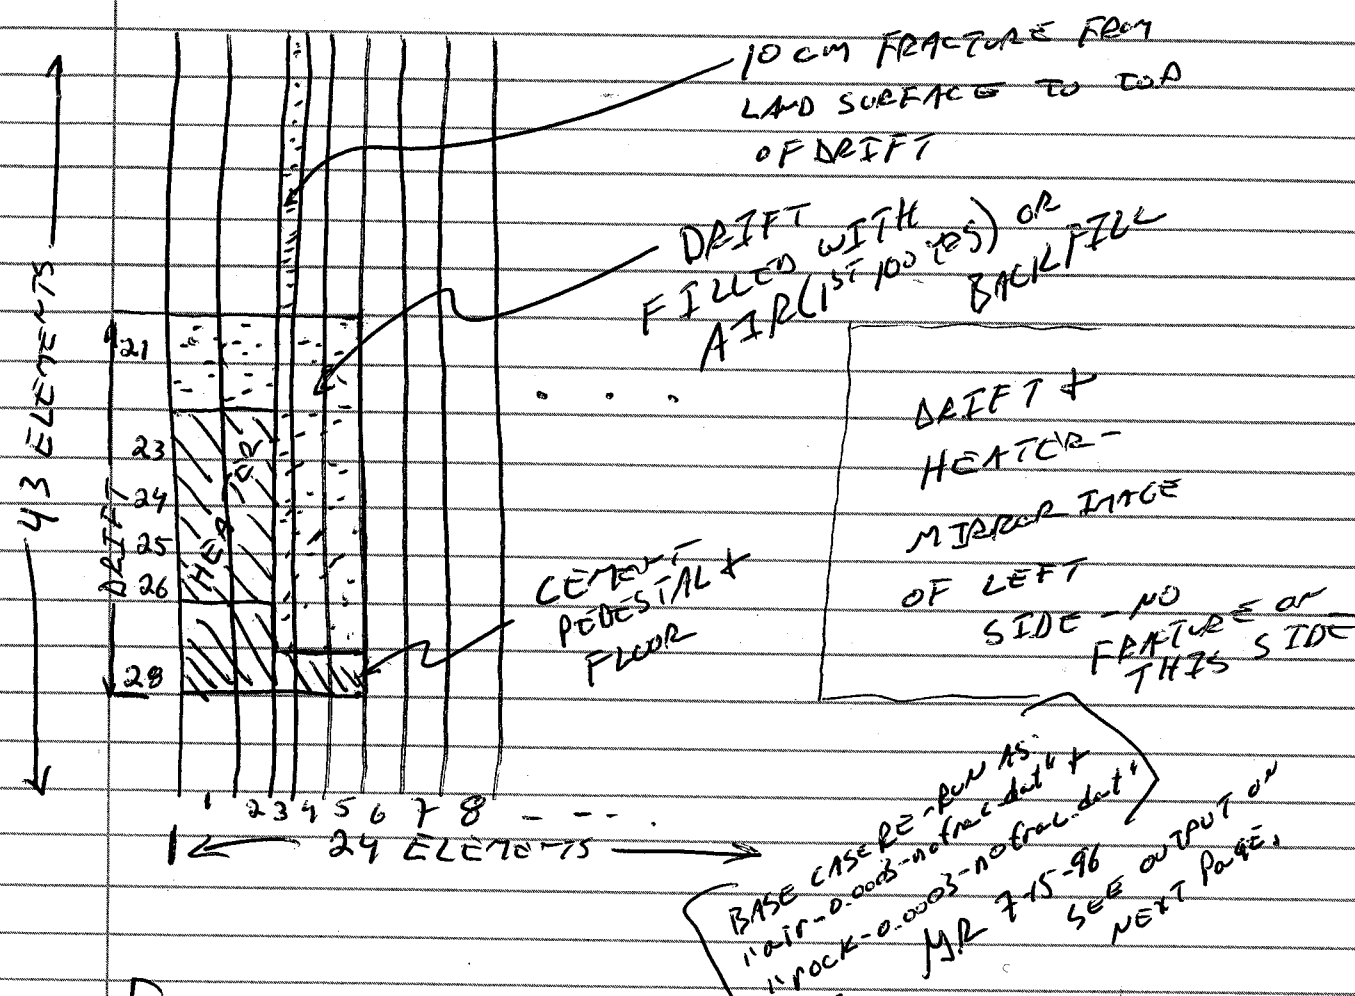 10 cm FRACTURE FROM
LAND SURFACE TO TOP
OF DRIFT
DRIFT
FILLED WITH
AIR (1ST 100 YRS) OR
BACKFILL
43 ELEMENTS
DRIFT
21
23
24
25
26
28
HEATER
. . .
DRIFT +
HEATER -
MIRROR IMAGE
OF LEFT
SIDE - NO
FRATURE ON
THIS SIDE
CEMENT
PEDESTAL +
FLOOR
1 2 3 4 5 6 7 8 - - - .
24 ELEMENTS
BASE CASE RE-RUN AS
"air-0.0003-nofrac.dat" +
"rock-0.0003-nofrac.dat"
MR 7-15-96
SEE OUTPUT ON
NEXT PAGE.